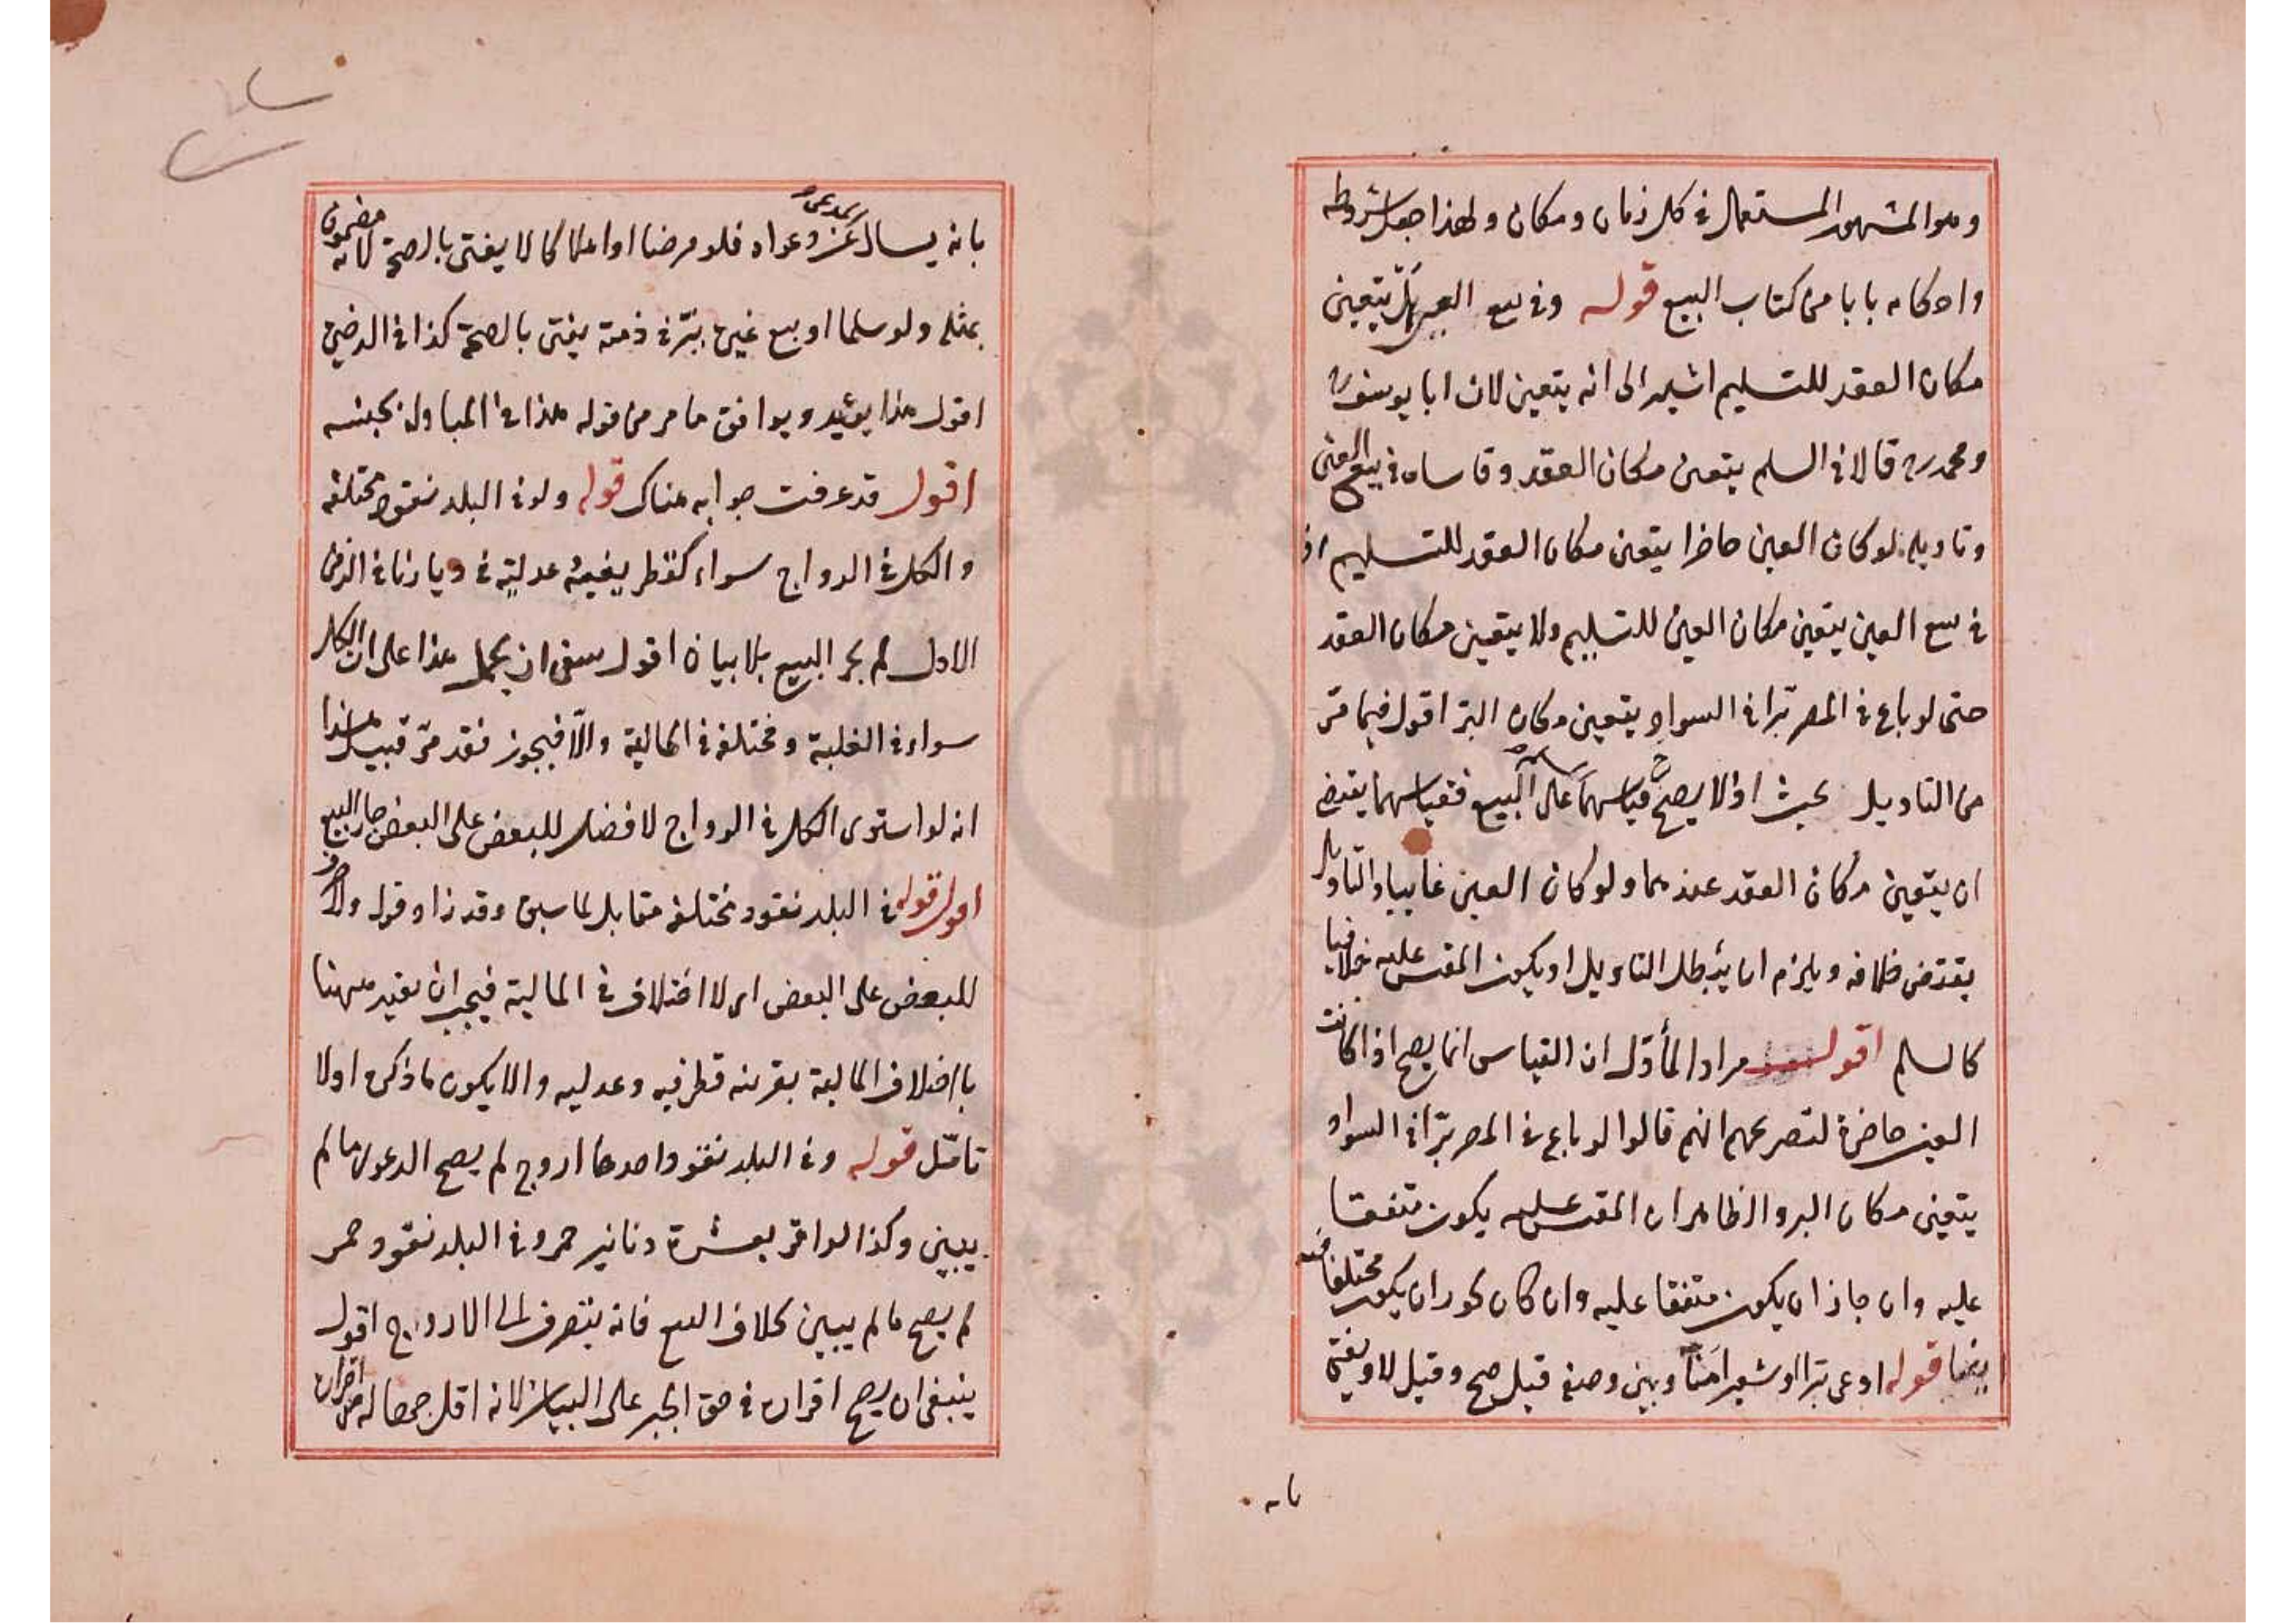 وهو المشهور المستعمل في كل زمان ومكان ولهذا جعل شروطه
واحكامه بابا من كتاب البيع قوله وفي بيع العين هل يتعين
مكان العقد للتسليم اشير الى انه يتعين لان ابا يوسف رح
ومحمد رح قالا في السلم يتعين مكان العقد وقاساه في بيع العين
وتاويله لو كان العين حاضرا يتعين مكان العقد للتسليم اذ
في بيع العين يتعين مكان العين للتسليم ولا يتعين مكان العقد
حتى لو باع في المصر برّا في السواد يتعين مكان البرّ اقول فيما مرّ
من التاويل بحث اذ لا يصحّ قياسهما على البيع فقياسهما يقتضي
ان يتعين مكان العقد عندهما ولو كان العين غايبا والتاويل
يقتضى خلافه ويلزم اما يبطل التاويل او يكون المقيس عليه خلافيا
كالسلم اقول مراد المأوّل ان القياس انما يصح اذا كانت
العين حاضرة لتصريحهم انهم قالوا لو باع في المصر برّا في السواد
يتعين مكان البر والظاهر ان المقيس عليه يكون متفقا
عليه وان جاز ان يكون متفقا عليه وان كان يجوز ان يكون مختلفا فيه
بينهما قوله ادعى برّا او شعيرا منًا وبين وصفه قيل صح وقيل لا ويفتى
بانه
بانه يسال المدعى عن دعواه فلو قرضا او اهلاكا لا يفتى بالصحة لانه مضمون
بمثله ولو سلما او بيع عين ببرّ في ذمته يفتى بالصحة كذا في الرضي
اقول هذا يؤيد ويوافق ما مر من قوله هذا في المبادلة بجنسه
اقول قد عرفت جوابه هناك قوله ولو في البلد نقود مختلفة
والكل في الرواج سواء كقطريفية وعدلية في ديارنا في الزمن
الاول لم يجز البيع بلا بيان اقول ينبغي ان يحمل هذا على ان الكل
سواء في الغلبة ومختلفة في المالية والّا فيجوز فقد مرّ قبيل هذا
انه لو استوى الكل في الرواج لا فضل للبعض على البعض جاز البيع
اقول قوله في البلد نقود مختلفة مقابل لما سبق وقد زاد قوله ولا صرف
للبعض على البعض اى لا اختلاف في المالية فيجب ان يقيد ههنا
باختلاف المالية بقرينة قطرفيه وعدليه والا يكون ما ذكره اولا
تامّل قوله وفي البلد نقود احدها اروج لم يصح الدعوى ما لم
يبين وكذا لو اقر بعشرة دنانير حمر وفي البلد نقود حمر
لم يصح ما لم يبين بخلاف البيع فانه ينصرف الى الاروج اقول
ينبغي ان يصح اقراره في حق الجبر على البيان لانه اقل جهالة من اقراره